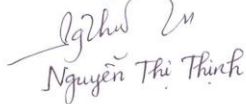 Nguyễn Thị Thịnh